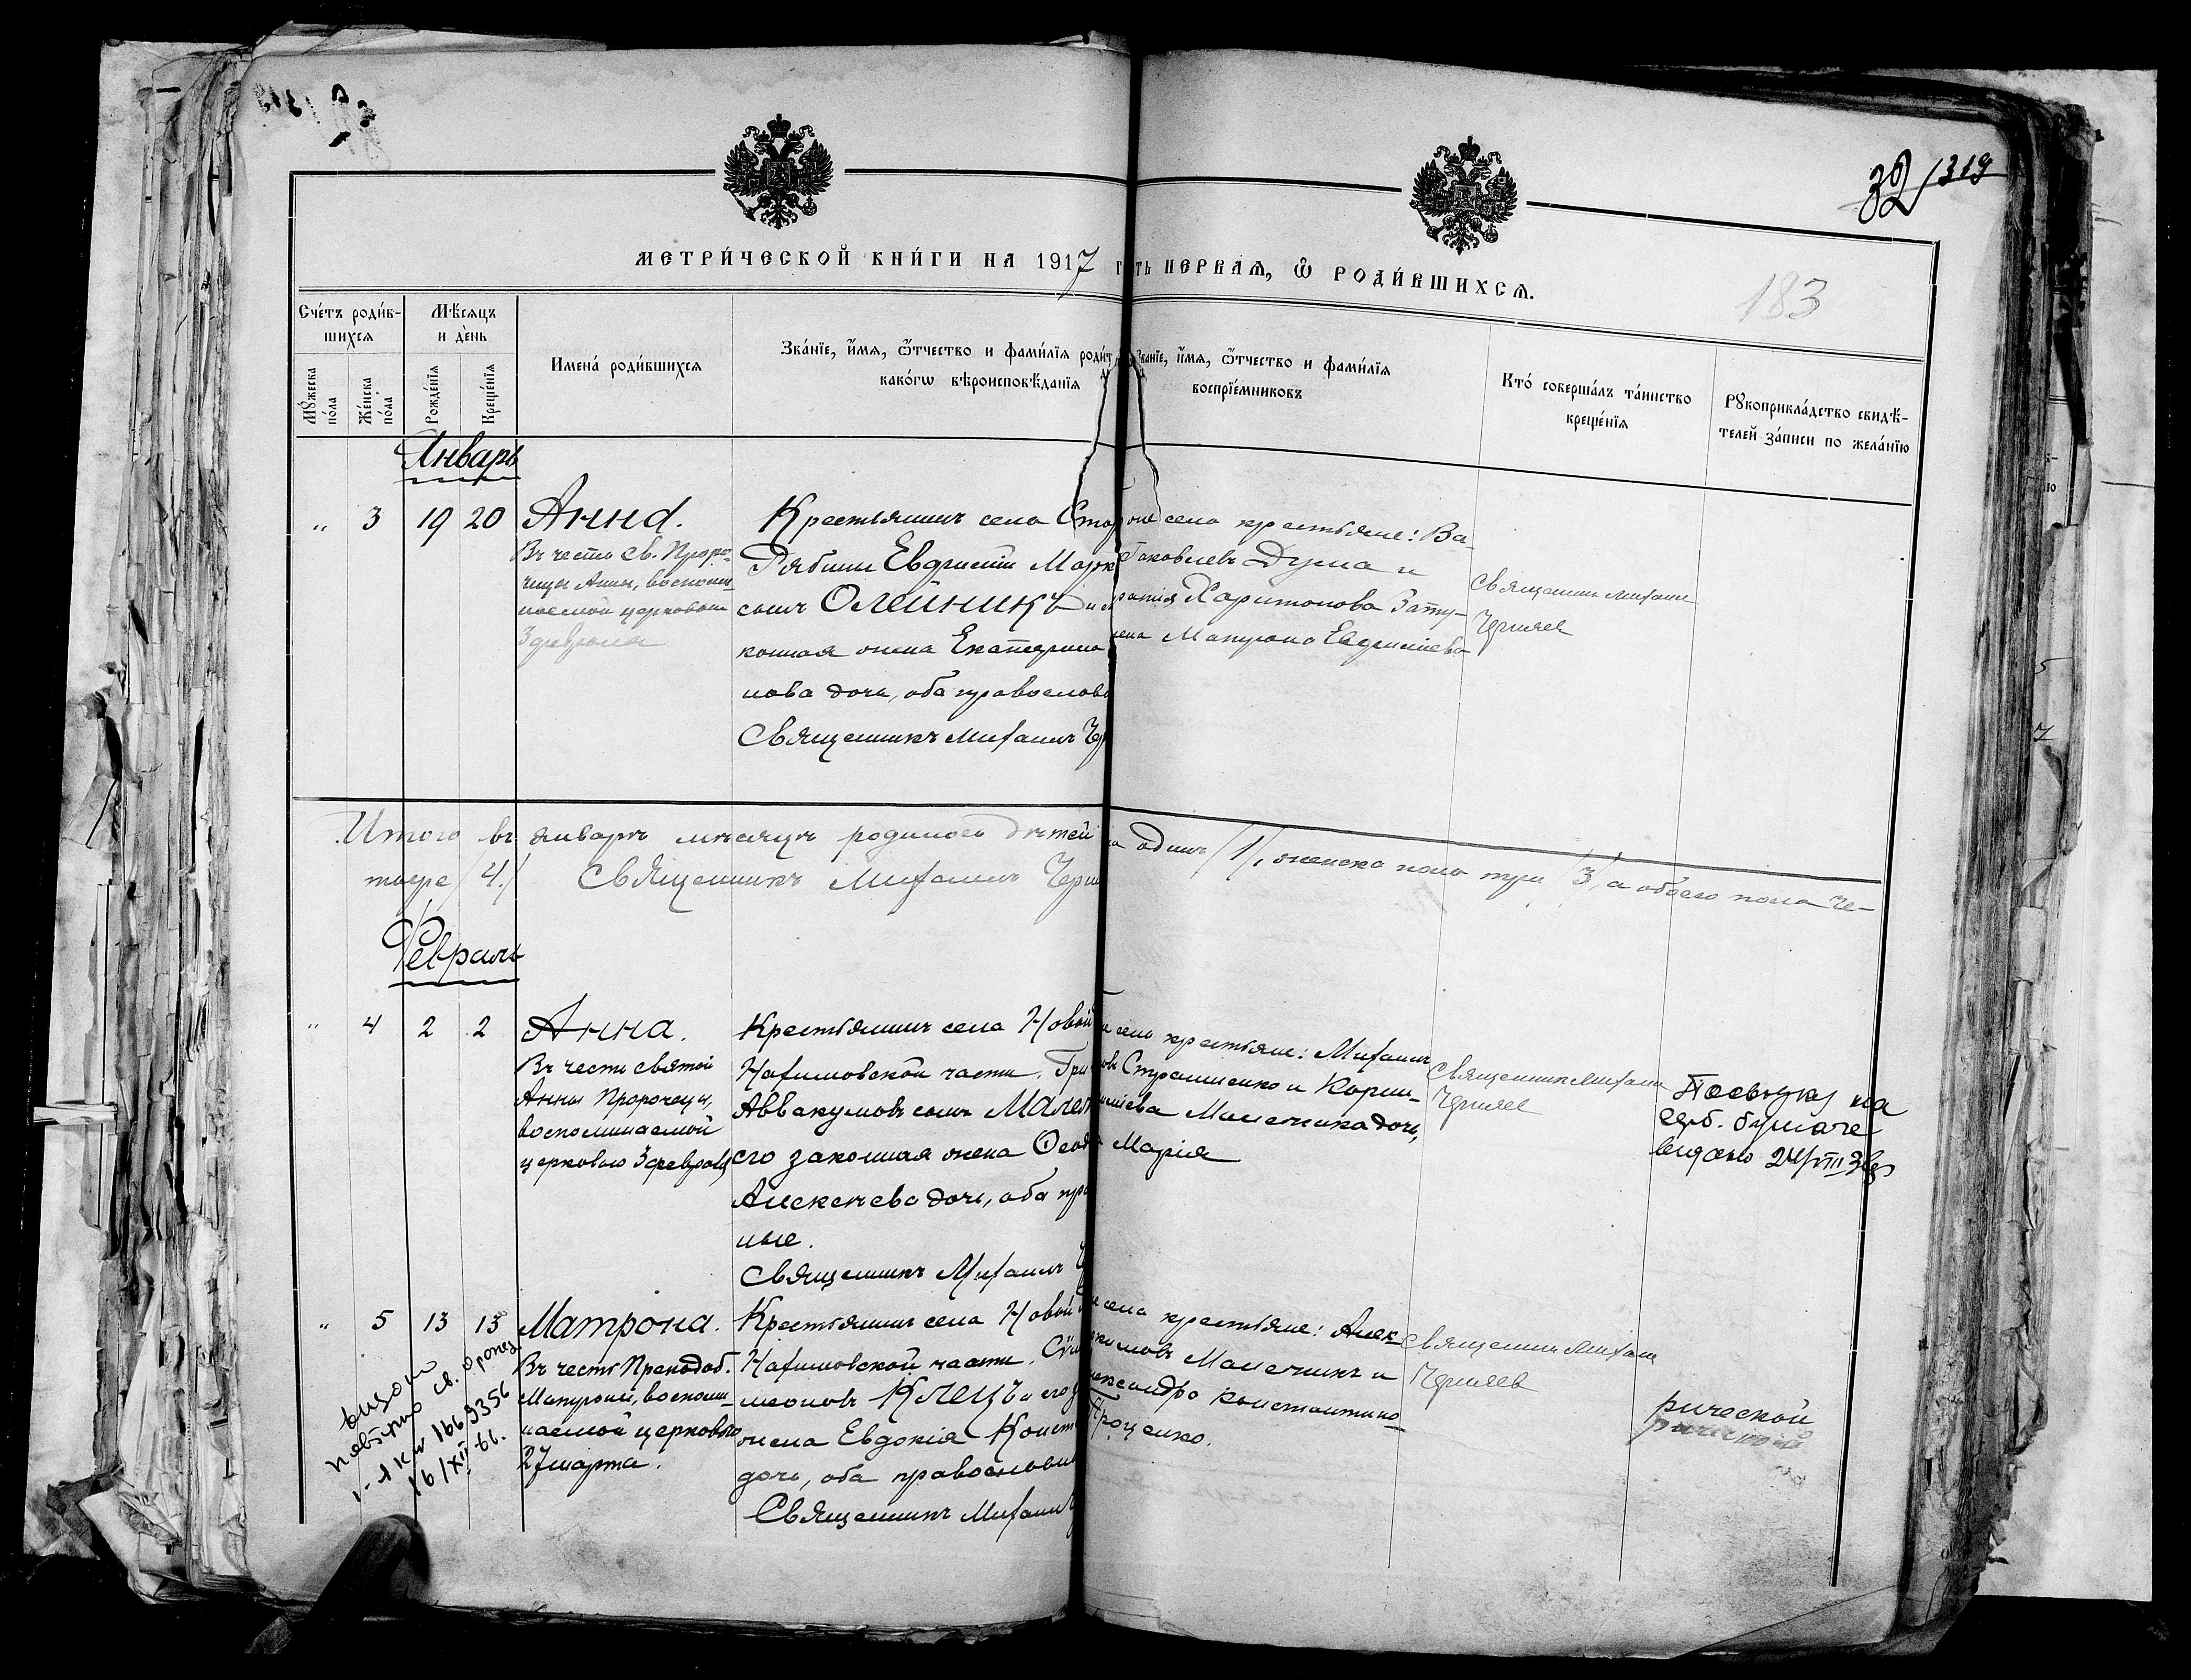 32/319
183
МЕТРИ́ЧЕСКОЙ КНИ́ГИ НА 1917 Г
ТЬ ПЕРВАѦ, Ѽ РОДИ́ВШИХСѦ.
Сче́тъ роди́в-
шихсѧ
Мꙋ́жеска по́ла
Же́нска по́ла
Мѣ́сѧцъ
и де́нь
Рожде́нїѧ
Креще́нїѧ
Имена́ роди́вшихсѧ
Зва́нїе, и́мѧ, ѻ́тчество и фами́лїѧ роди́т
како́гѡ вѣроисповѣ́данїѧ
Зва́нїе, и́мѧ, ѻ́тчество и фами́лїѧ
воспрїе́мниковъ
Кто́ соверша́лъ та́инство
креще́нїѧ
Рꙋкоприкла́дство свидѣ́-
телей за́писи по жела́нїю
Январь
" 3 19 20 Анна.
Въ честь Св. Проро-
чицы Анны, воспоми-
наемой церковью
3 февраля
Крестьянинъ села Стар
Рябины Евфимій Марк
сынъ Олейникъ и
конная жена Екатерина
нова дочь, оба православ
Священникъ Михаилъ Чер
села крестьяне: Ва-
Яковлевъ Дума и
Харитонова Зату-
Матрона Евфиміева
Священникъ Михаилъ
Черняев
Итого въ январѣ мѣсяцѣ родилось дѣтей
одинъ /1/, женска пола три /3/, а обоего пола че-
тыре /4./ Священникъ Михаилъ Черн
Февраль
" 4 2 2 Анна.
Въ честь святой
Анны Пророчицы,
воспоминаемой
церковью 3 февраля
Крестьянинъ села Новой
Нахимовской части, Гри
Аввакумовъ сынъ Малет
его законная жена Ѳеод
Алексѣева дочь, оба пра
ные.
Священникъ Михаилъ Ч
села крестьяне: Михаилъ
Страшненко и
дочь,
Марія
Священникъ Михаилъ
Черняев
на
герб. бумаге
видано 24/VIII
" 5 13 13 Матрона.
Въ честь Преподоб.
Матроны, воспоми-
наемой церковью
27 марта.
Крестьянинъ села Новой
Нахимовской части, Сѵм
меоновъ Клецъ и его з
жена Евдокія Конст
дочь, оба православн
Священникъ Михаилъ Ч
села крестьяне: Алек-
и
ександра Константино-
Проценко.
Священникъ Михаилъ
Черняев
рической
повторно св. о рожд.
1669356
16/XII-61.